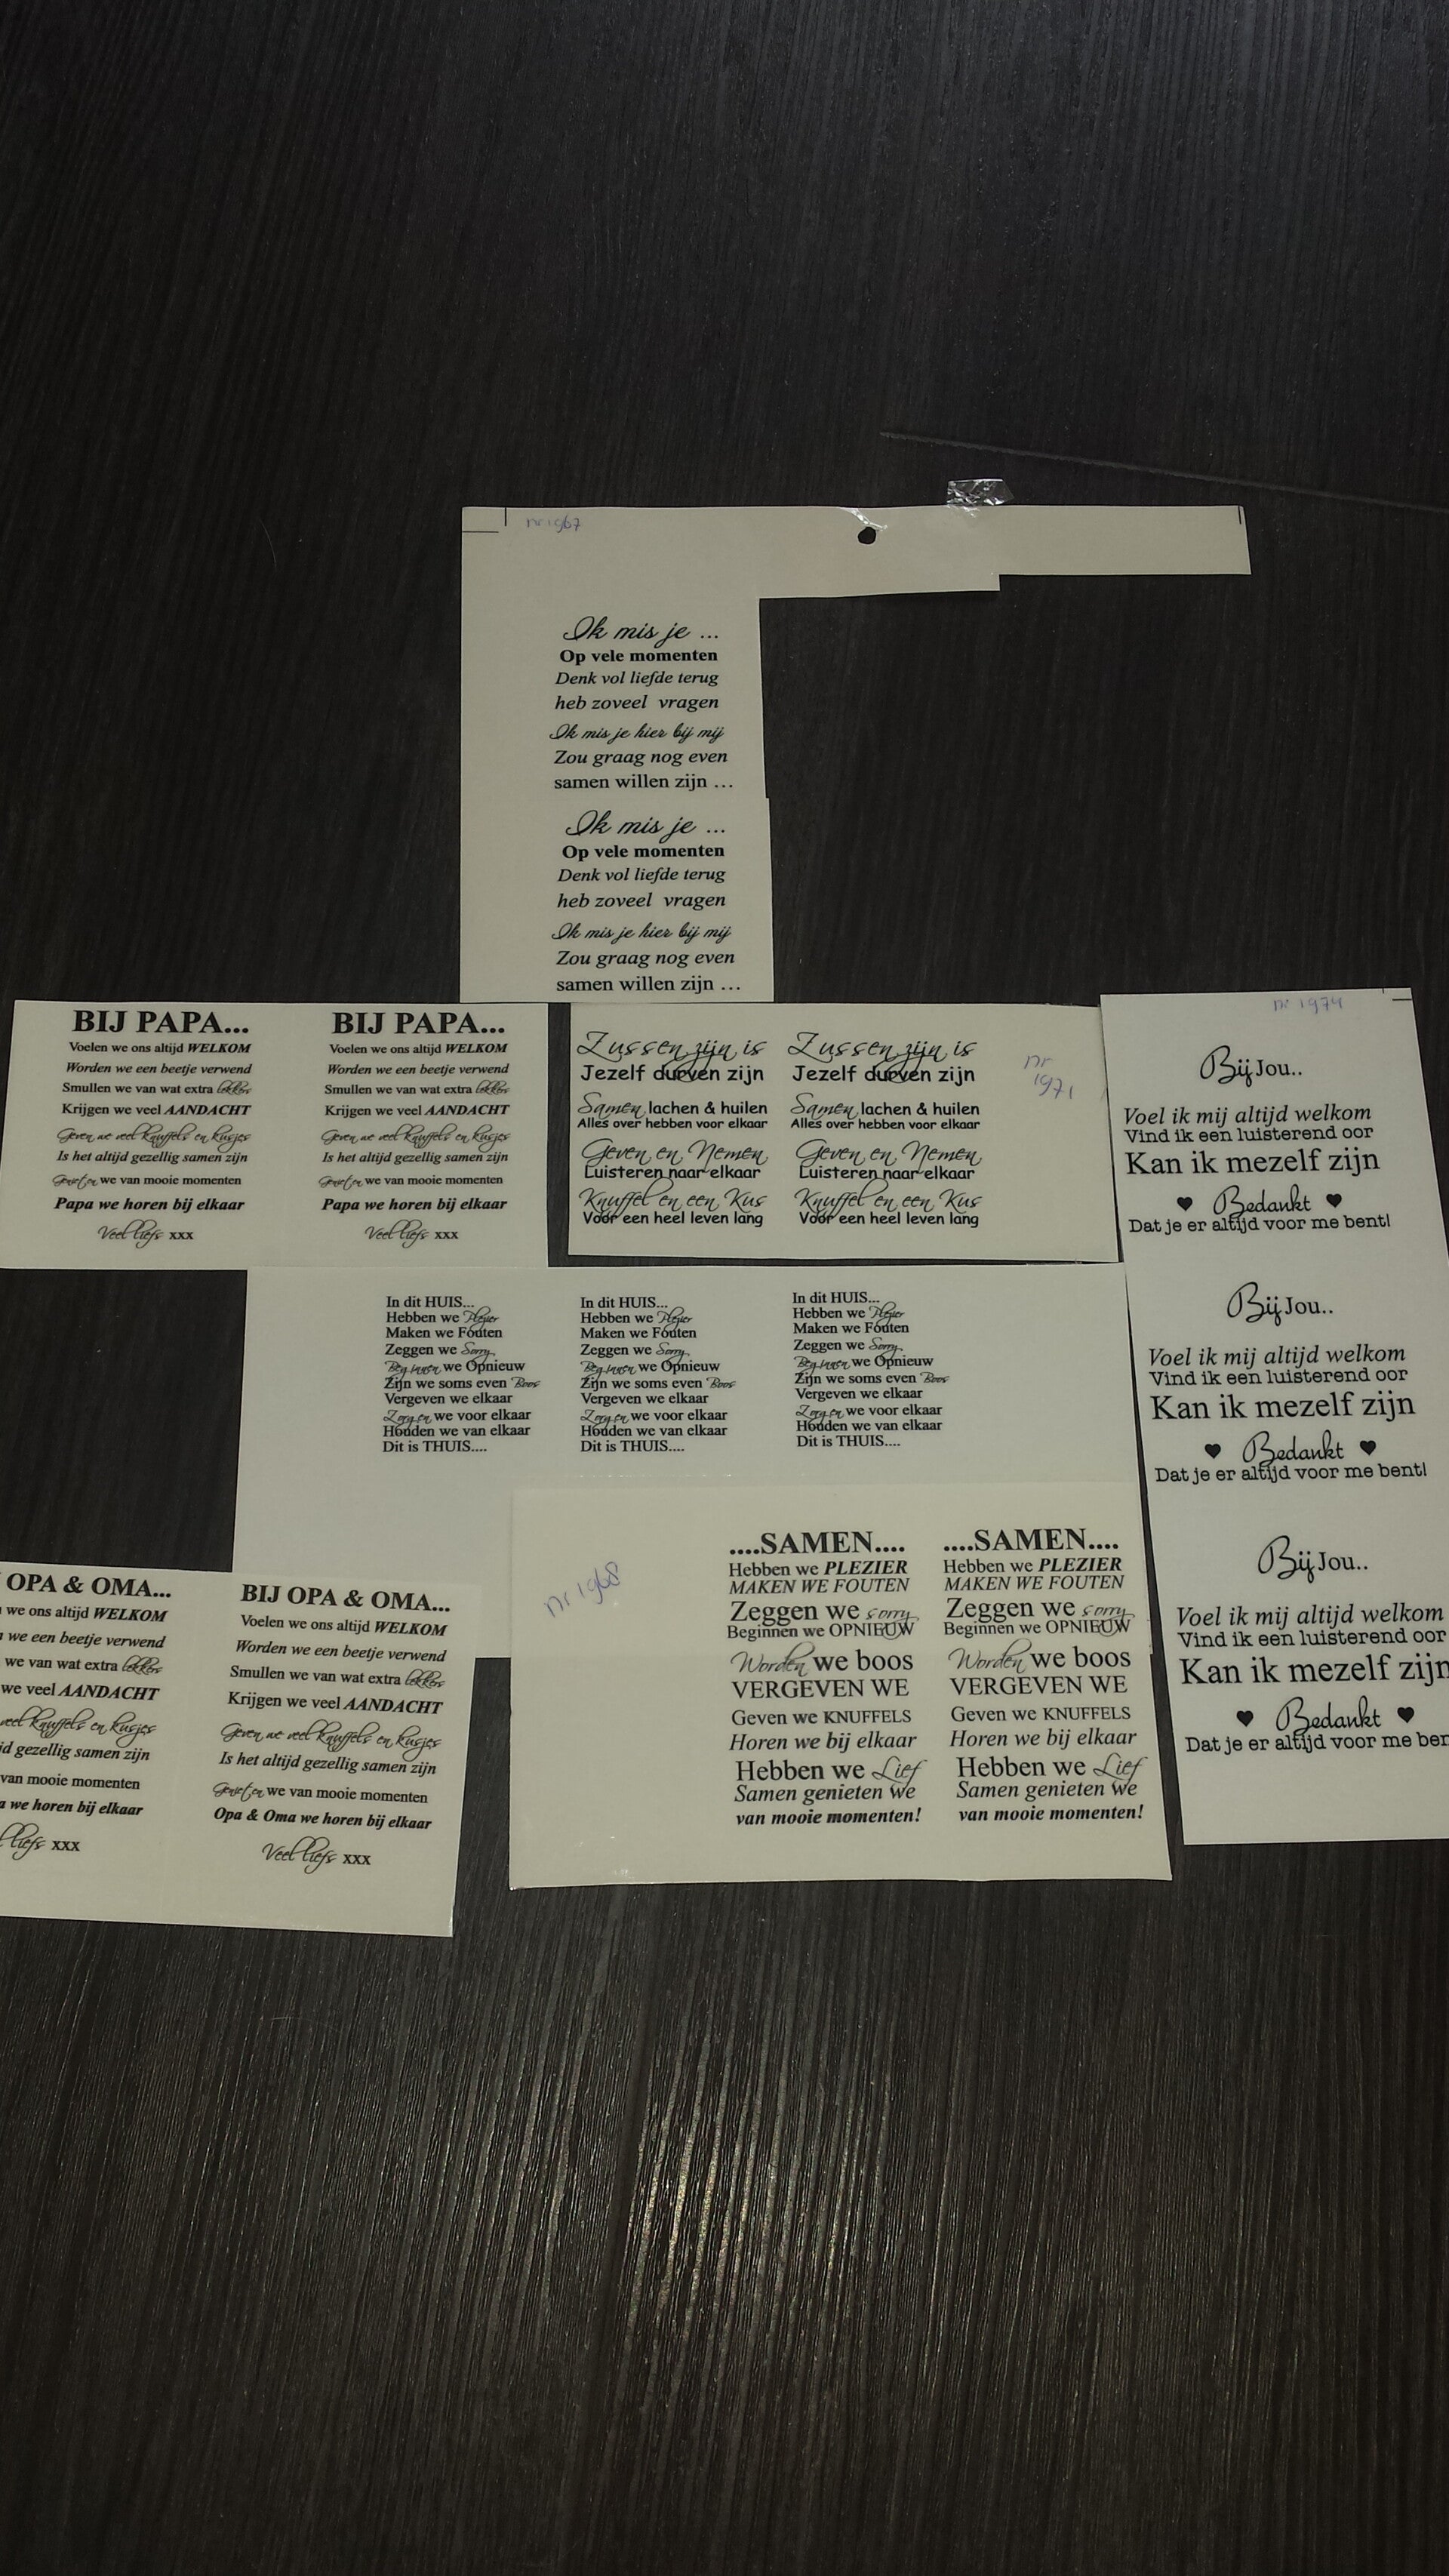 nr 1967
Ik mis je ...
Op vele momenten
Denk vol liefde terug
heb zoveel vragen
Ik mis je hier bij mij
Zou graag nog even
samen willen zijn ...
Ik mis je ...
Op vele momenten
Denk vol liefde terug
heb zoveel vragen
Ik mis je hier bij mij
Zou graag nog even
samen willen zijn ...
BIJ PAPA...
Voelen we ons altijd WELKOM
Worden we een beetje verwend
Smullen we van wat extra lekkers
Krijgen we veel AANDACHT
Geven we veel knuffels en kusjes
Is het altijd gezellig samen zijn
Genieten we van mooie momenten
Papa we horen bij elkaar
Veel liefs xxx
BIJ PAPA...
Voelen we ons altijd WELKOM
Worden we een beetje verwend
Smullen we van wat extra lekkers
Krijgen we veel AANDACHT
Geven we veel knuffels en kusjes
Is het altijd gezellig samen zijn
Genieten we van mooie momenten
Papa we horen bij elkaar
Veel liefs xxx
Zussen zijn is
Jezelf durven zijn
Samen lachen & huilen
Alles over hebben voor elkaar
Geven en Nemen
Luisteren naar elkaar
Knuffel en een Kus
Voor een heel leven lang
Zussen zijn is
Jezelf durven zijn
Samen lachen & huilen
Alles over hebben voor elkaar
Geven en Nemen
Luisteren naar elkaar
Knuffel en een Kus
Voor een heel leven lang
nr
1971
nr 1974
Bij Jou..
Voel ik mij altijd welkom
Vind ik een luisterend oor
Kan ik mezelf zijn
Bedankt
Dat je er altijd voor me bent!
Bij Jou..
Voel ik mij altijd welkom
Vind ik een luisterend oor
Kan ik mezelf zijn
Bedankt
Dat je er altijd voor me bent!
Bij Jou..
Voel ik mij altijd welkom
Vind ik een luisterend oor
Kan ik mezelf zijn
Bedankt
Dat je er altijd voor me ben
In dit HUIS...
Hebben we Plezier
Maken we Fouten
Zeggen we Sorry
Beginnen we Opnieuw
Zijn we soms even Boos
Vergeven we elkaar
Zorgen we voor elkaar
Houden we van elkaar
Dit is THUIS....
In dit HUIS...
Hebben we Plezier
Maken we Fouten
Zeggen we Sorry
Beginnen we Opnieuw
Zijn we soms even Boos
Vergeven we elkaar
Zorgen we voor elkaar
Houden we van elkaar
Dit is THUIS....
In dit HUIS...
Hebben we Plezier
Maken we Fouten
Zeggen we Sorry
Beginnen we Opnieuw
Zijn we soms even Boos
Vergeven we elkaar
Zorgen we voor elkaar
Houden we van elkaar
Dit is THUIS....
OPA & OMA...
we ons altijd WELKOM
we een beetje verwend
we van wat extra lekkers
we veel AANDACHT
veel knuffels en kusjes
gezellig samen zijn
van mooie momenten
we horen bij elkaar
liefs xxx
BIJ OPA & OMA...
Voelen we ons altijd WELKOM
Worden we een beetje verwend
Smullen we van wat extra lekkers
Krijgen we veel AANDACHT
Geven we veel knuffels en kusjes
Is het altijd gezellig samen zijn
Genieten we van mooie momenten
Opa & Oma we horen bij elkaar
Veel liefs xxx
nr 1968
....SAMEN....
Hebben we PLEZIER
MAKEN WE FOUTEN
Zeggen we sorry
Beginnen we OPNIEUW
Worden we boos
VERGEVEN WE
Geven we KNUFFELS
Horen we bij elkaar
Hebben we Lief
Samen genieten we
van mooie momenten!
....SAMEN....
Hebben we PLEZIER
MAKEN WE FOUTEN
Zeggen we sorry
Beginnen we OPNIEUW
Worden we boos
VERGEVEN WE
Geven we KNUFFELS
Horen we bij elkaar
Hebben we Lief
Samen genieten we
van mooie momenten!